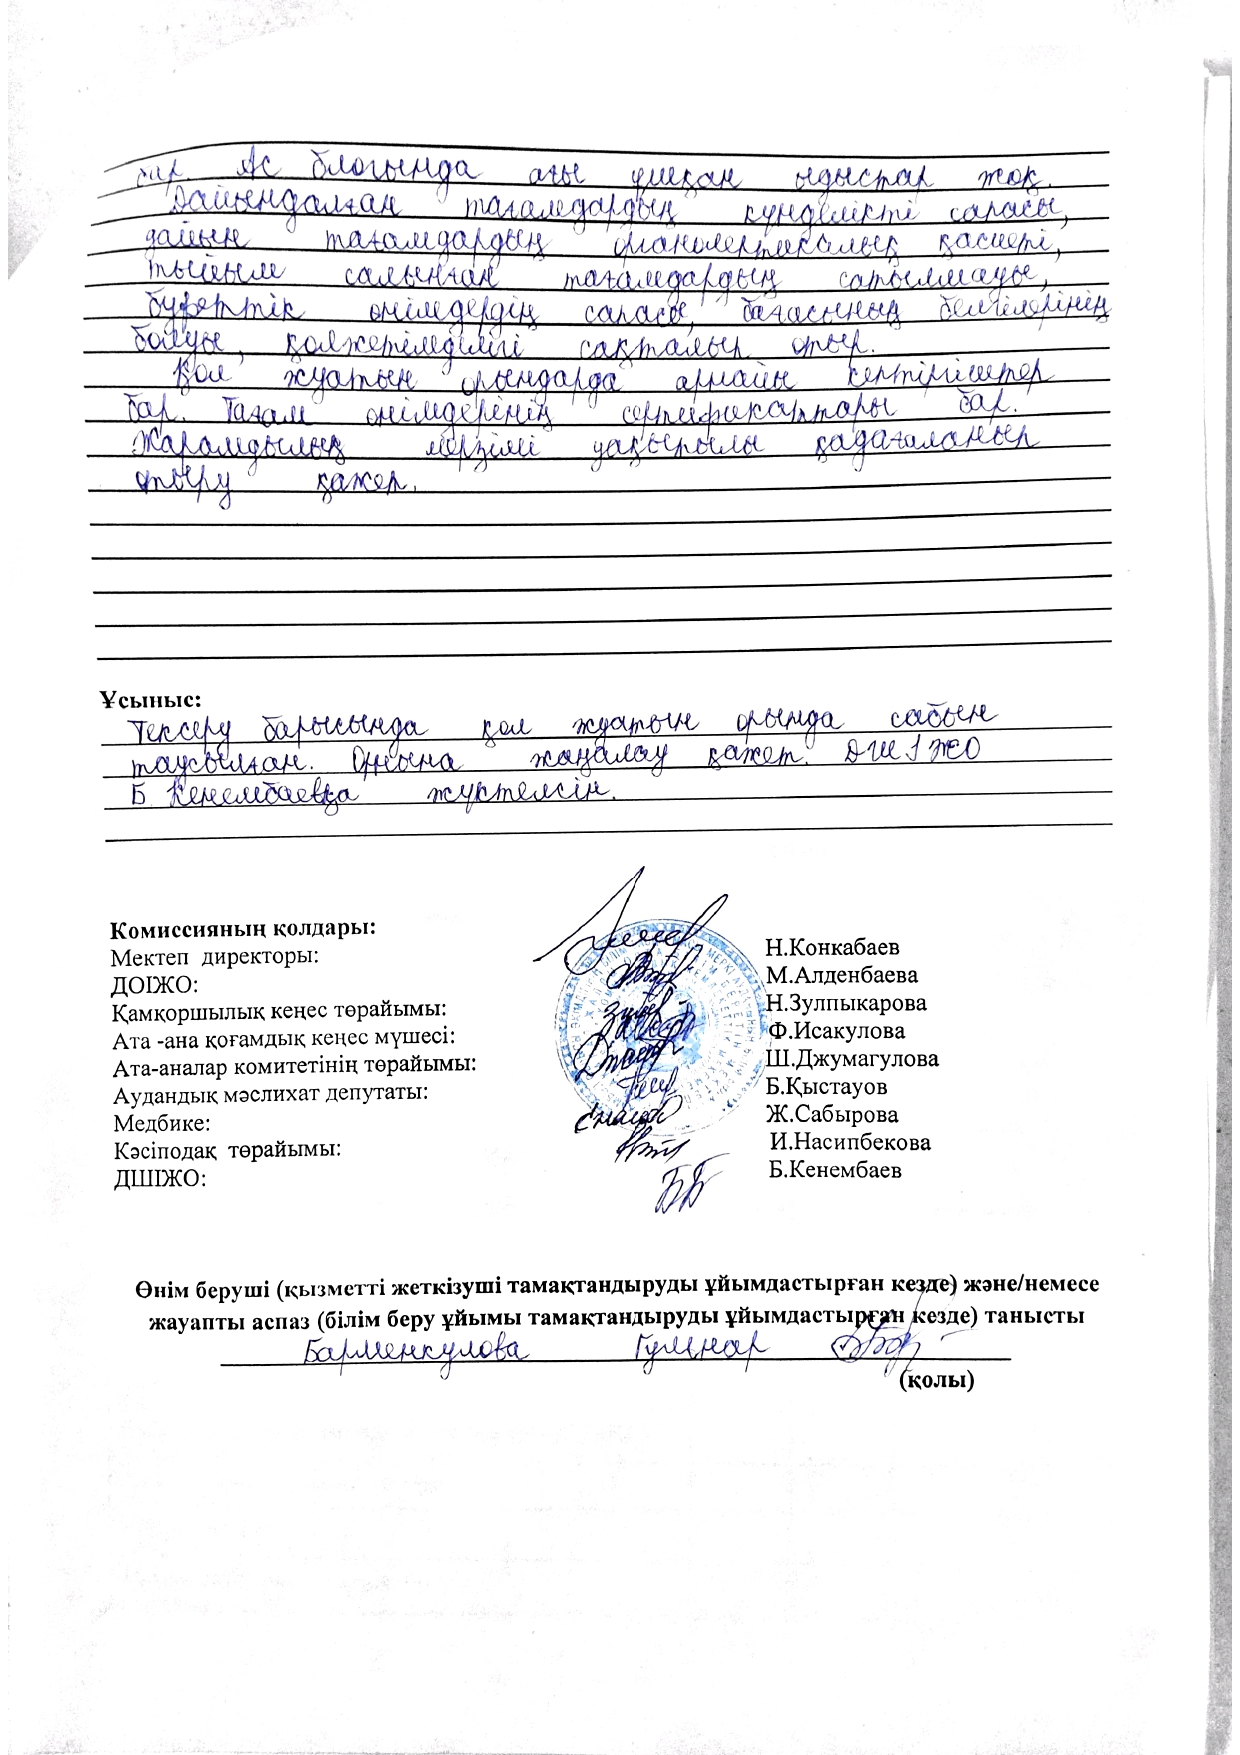 бар. Ас блогында ағы ұшқан ыдыстар жоқ.
Дайындалған тағамдардың күнделікті сапасы,
дайын тағамдардың органолептикалық қасиеті,
тыйым салынған тағамдардың сатылмауы,
буфеттік өнімдердің сапасы, бағасының белгілерінің
болуы, қолжетімділігі сақталып отыр.
Қол жуатын орындарда арнайы кептіргіштер
бар. Тағам өнімдерінің сертификаттары бар.
Жарамдылық мерзімі уақытылы қадағаланып
отыру қажет.
Ұсыныс:
Тексеру барысында қол жуатын орында сабын
таусылған. Орнына жаңалау қажет. ДШІЖО
Б Кенембаевқа жүктелсін.
Комиссияның қолдары:
Мектеп директоры: Н.Конкабаев
ДОІЖО: М.Алденбаева
Қамқоршылық кеңес төрайымы: Н.Зулпыкарова
Ата -ана қоғамдық кеңес мүшесі: Ф.Исакулова
Ата-аналар комитетінің төрайымы: Ш.Джумагулова
Аудандық мәслихат депутаты: Б.Қыстауов
Медбике: Ж.Сабырова
Кәсіподақ төрайымы: И.Насипбекова
ДШІЖО: Б.Кенембаев
Өнім беруші (қызметті жеткізуші тамақтандыруды ұйымдастырған кезде) және/немесе
жауапты аспаз (білім беру ұйымы тамақтандыруды ұйымдастырған кезде) танысты
Барменкулова Гулнар
(қолы)